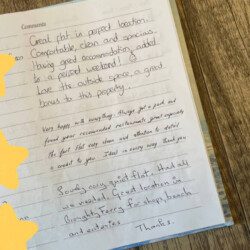 Comments
Great flat in perfect location.
Comfortable, clean and spacious.
Having good accommodation added
to a perfect weekend!
Love the outside space, a great
bonus to this property.
Very happy with everything. Always get a park and
found your recommended restaurants great especially
the fort. Flat very clean and attention to detail
a credit to you. Ideal in every way thank you
Lovely cosy, quiet flat. Had all
we needed. Good location in
Broughty Ferry for shops, beach
and eateries.
Thanks.